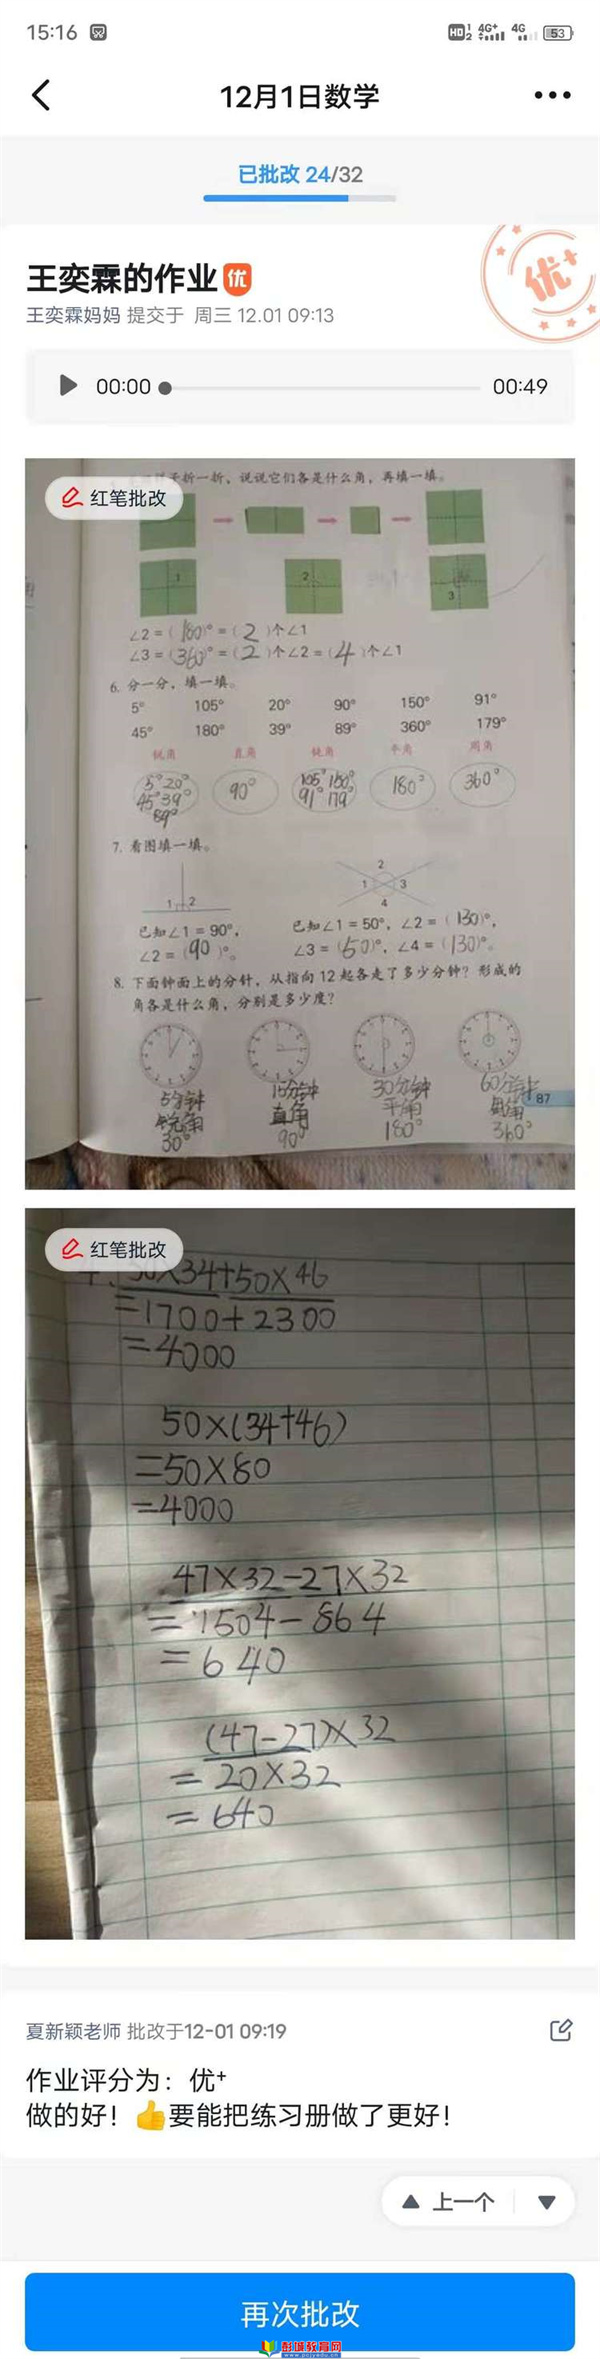 15:16
HD 1 2 4G+ 4G 53
12月1日数学
已批改 24/32
优+
王奕霖的作业 优
王奕霖妈妈 提交于 周三 12.01 09:13
00:00 00:49
折一折，说说它们各是什么角，再填一填。
红笔批改
1 2 3
∠2=(180)°=(2)个∠1
∠3=(360)°=(2)个∠2=(4)个∠1
6. 分一分，填一填。
5° 105° 20° 90° 150° 91°
45° 180° 39° 89° 360° 179°
锐角 直角 钝角 平角 周角
5° 20° 90° 105° 150° 180° 360°
45° 39° 91° 179°
89°
7. 看图填一填。
1 2
2
1 3
4
已知∠1=90°， 已知∠1=50°，∠2=(130)°，
∠2=(90)°。 ∠3=(50)°，∠4=(130)°。
8. 下面钟面上的分针，从指向12起各走了多少分钟？形成的
角各是什么角，分别是多少度？
5分钟 15分钟 30分钟 60分钟
锐角 直角 平角 周角
30° 90° 180° 360°
87
红笔批改
50×34+50×46
=1700+2300
=4000
50×(34+46)
=50×80
=4000
47×32-27×32
=1504-864
=640
(47-27)×32
=20×32
=640
夏新颖老师 批改于12-01 09:19
作业评分为：优+
做的好！👍要能把练习册做了更好！
上一个
再次批改
彭城教育网
www.pcjyedu.cn